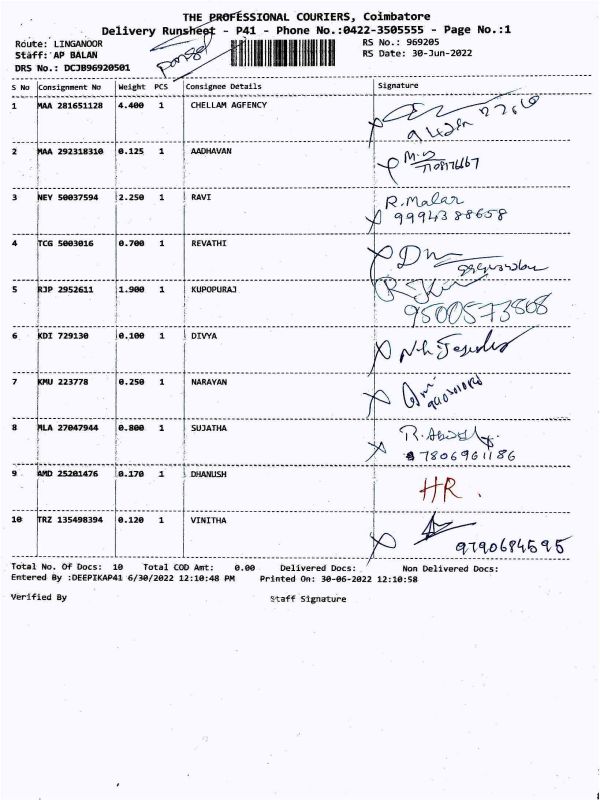 THE PROFESSIONAL COURIERS, Coimbatore
Delivery Runsheet - P41 - Phone No.:0422-3505555 - Page No.:1
Route: LINGANOOR
RS No.: 969205
Staff: AP BALAN
RS Date: 30-Jun-2022
DRS No.: DCJB96920501
S No Consignment No Weight PCS Consignee Details Signature
1 MAA 281651128 4.400 1 CHELLAM AGFENCY
2 MAA 292318310 0.125 1 AADHAVAN
3 NEY 50037594 2.250 1 RAVI R.Malar
9994388658
4 TCG 5003016 0.700 1 REVATHI
5 RJP 2952611 1.900 1 KUPOPURAJ
9500573808
6 KDI 729130 0.100 1 DIVYA
7 KMU 223778 0.250 1 NARAYAN
8 MLA 27047944 0.800 1 SUJATHA
7806961186
9 AMD 25201476 0.170 1 DHANUSH HR.
10 TRZ 135498394 0.120 1 VINITHA
9790684595
Total No. Of Docs: 10 Total COD Amt: 0.00 Delivered Docs: Non Delivered Docs:
Entered By :DEEPIKAP41 6/30/2022 12:10:48 PM Printed On: 30-06-2022 12:10:58
Verified By Staff Signature